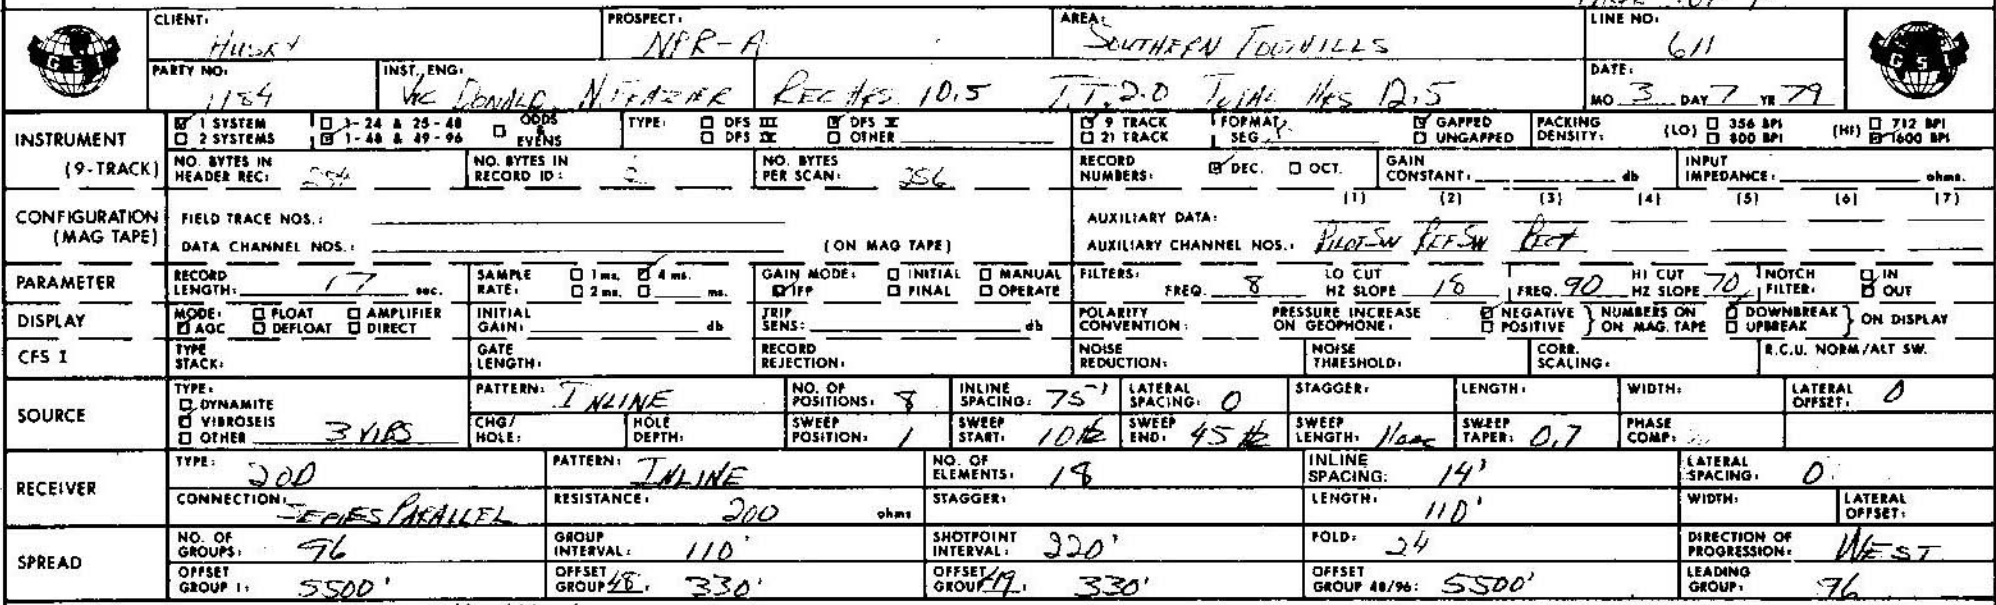 CLIENT: HUSKY PROSPECT: NPR-A AREA: SOUTHERN FOOTHILLS LINE NO: 611
GSI
PARTY NO: 1184 INST. ENG: VIC DONALD, N. FRAZIER REC HRS. 10.5 T.T. 2.0 TOTAL HRS 12.5 DATE: MO 3 DAY 7 YR 79
GSI
INSTRUMENT (9-TRACK) 1 SYSTEM 1-24 & 25-48 ODDS & EVENS TYPE: DFS III DFS V 9 TRACK FORMAT: GAPPED PACKING DENSITY: (LO) 356 BPI (HI) 712 BPI
2 SYSTEMS 1-48 & 49-96 DFS IV OTHER 21 TRACK SEG UNGAPPED 800 BPI 1600 BPI
NO. BYTES IN HEADER REC: NO. BYTES IN RECORD ID: 2 NO. BYTES PER SCAN: 256 RECORD NUMBERS: DEC. OCT. GAIN CONSTANT: db INPUT IMPEDANCE: ohms.
CONFIGURATION (MAG TAPE) FIELD TRACE NOS.: AUXILIARY DATA: (1) (2) (3) (4) (5) (6) (7)
DATA CHANNEL NOS.: (ON MAG TAPE) AUXILIARY CHANNEL NOS.: PILOT SW REF SW
PARAMETER RECORD LENGTH: 17 sec. SAMPLE RATE: 1 ms. 4 ms. 2 ms. ms. GAIN MODE: INITIAL MANUAL IFP FINAL OPERATE FILTERS: FREQ. 8 LO CUT HZ SLOPE 18 FREQ. 90 HI CUT HZ SLOPE 70 NOTCH FILTER: IN OUT
DISPLAY MODE: FLOAT AMPLIFIER AGC DEFLOAT DIRECT INITIAL GAIN: db TRIP SENS: db POLARITY CONVENTION: PRESSURE INCREASE ON GEOPHONE: NEGATIVE POSITIVE NUMBERS ON ON MAG. TAPE DOWNBREAK UPBREAK ON DISPLAY
CFS I TYPE STACK: GATE LENGTH: RECORD REJECTION: NOISE REDUCTION: NOISE THRESHOLD: CORR. SCALING: R.C.U. NORM/ALT SW.
SOURCE TYPE: DYNAMITE VIBROSEIS OTHER 3 VIBS PATTERN: INLINE NO. OF POSITIONS: 8 INLINE SPACING: 75' LATERAL SPACING: 0 STAGGER: LENGTH: WIDTH: LATERAL OFFSET: 0
CHG/HOLE: HOLE DEPTH: SWEEP POSITION: 1 SWEEP START: 10 Hz SWEEP END: 45 Hz SWEEP LENGTH: SWEEP TAPER: 0.7 PHASE COMP:
RECEIVER TYPE: 20D PATTERN: INLINE NO. OF ELEMENTS: 18 INLINE SPACING: 14' LATERAL SPACING: 0
CONNECTION: SERIES PARALLEL RESISTANCE: 200 ohms STAGGER: LENGTH: 110' WIDTH: LATERAL OFFSET:
SPREAD NO. OF GROUPS: 96 GROUP INTERVAL: 110' SHOTPOINT INTERVAL: 220' FOLD: 24 DIRECTION OF PROGRESSION: WEST
OFFSET GROUP 1: 5500' OFFSET GROUP 48: 330' OFFSET GROUP 49: 330' OFFSET GROUP 48/96: 5500' LEADING GROUP: 96